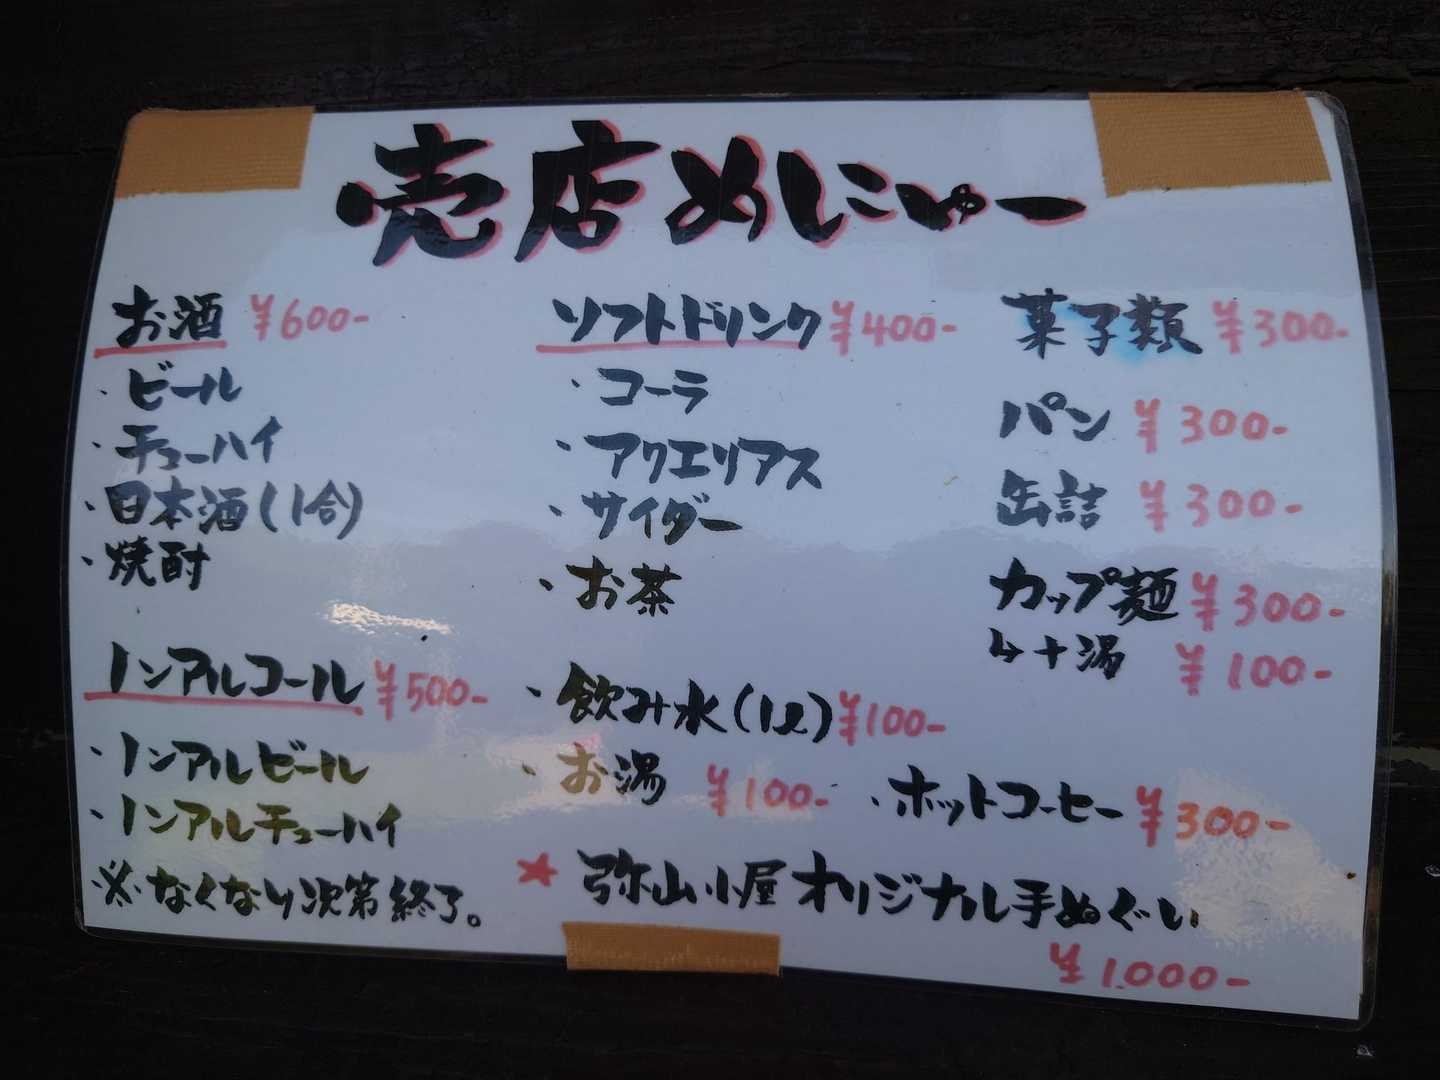 売店めにゅー
お酒 ¥600-
・ビール
・チューハイ
・日本酒(1合)
・焼酎
ノンアルコール ¥500-
・ノンアルビール
・ノンアルチューハイ
※なくなり次第終了。
ソフトドリンク ¥400-
・コーラ
・アクエリアス
・サイダー
・お茶
・飲み水(1ℓ) ¥100-
・お湯 ¥100-
・ホットコーヒー ¥300-
菓子類 ¥300-
パン ¥300-
缶詰 ¥300-
カップ麺 ¥300-
↳+湯 ¥100-
★ 弥山小屋オリジナル手ぬぐい
¥1.000-